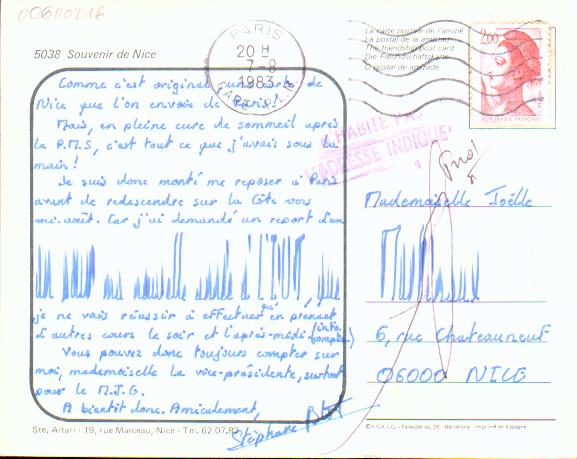 006002-16
5038 Souvenir de Nice
Comme c'est original, une carte de
Nice que l'on envoie de Paris!
Mais, en pleine cure de sommeil après
la P.M.S, c'est tout ce que j'avais sous la
main!
Je suis donc monté me reposer à Paris
avant de redescendre sur la Côte vers
mi-août. Car j'ai demandé un report d'un
an pour ma nouvelle année à l'IUT, que
je ne vais réussir à effectuer qu'en prenant
d'autres cours le soir et l'après-midi (info.
compta.)
Vous pouvez donc toujours compter sur
moi, mademoiselle la vice-présidente, surtout
pour le M.J.G.
A bientôt donc. Amicalement,
Stéphane
Ste. Altari - 19, rue Marceau, Nice - Tel. 62.07.82
PARIS
20 H
7-8
1983
La carte postale de l'amitié
La postal de la amistad
The friendship post card
Die Freundschaftskarte
O postal de amizade
2,00
REPUBLIQUE FRANÇAISE
N'HABITE PAS
L'ADRESSE INDIQUÉE
Mademoiselle Joëlle
6, rue Chateauneuf
06000 NICE
Barcelona - Imprimé en Espagne